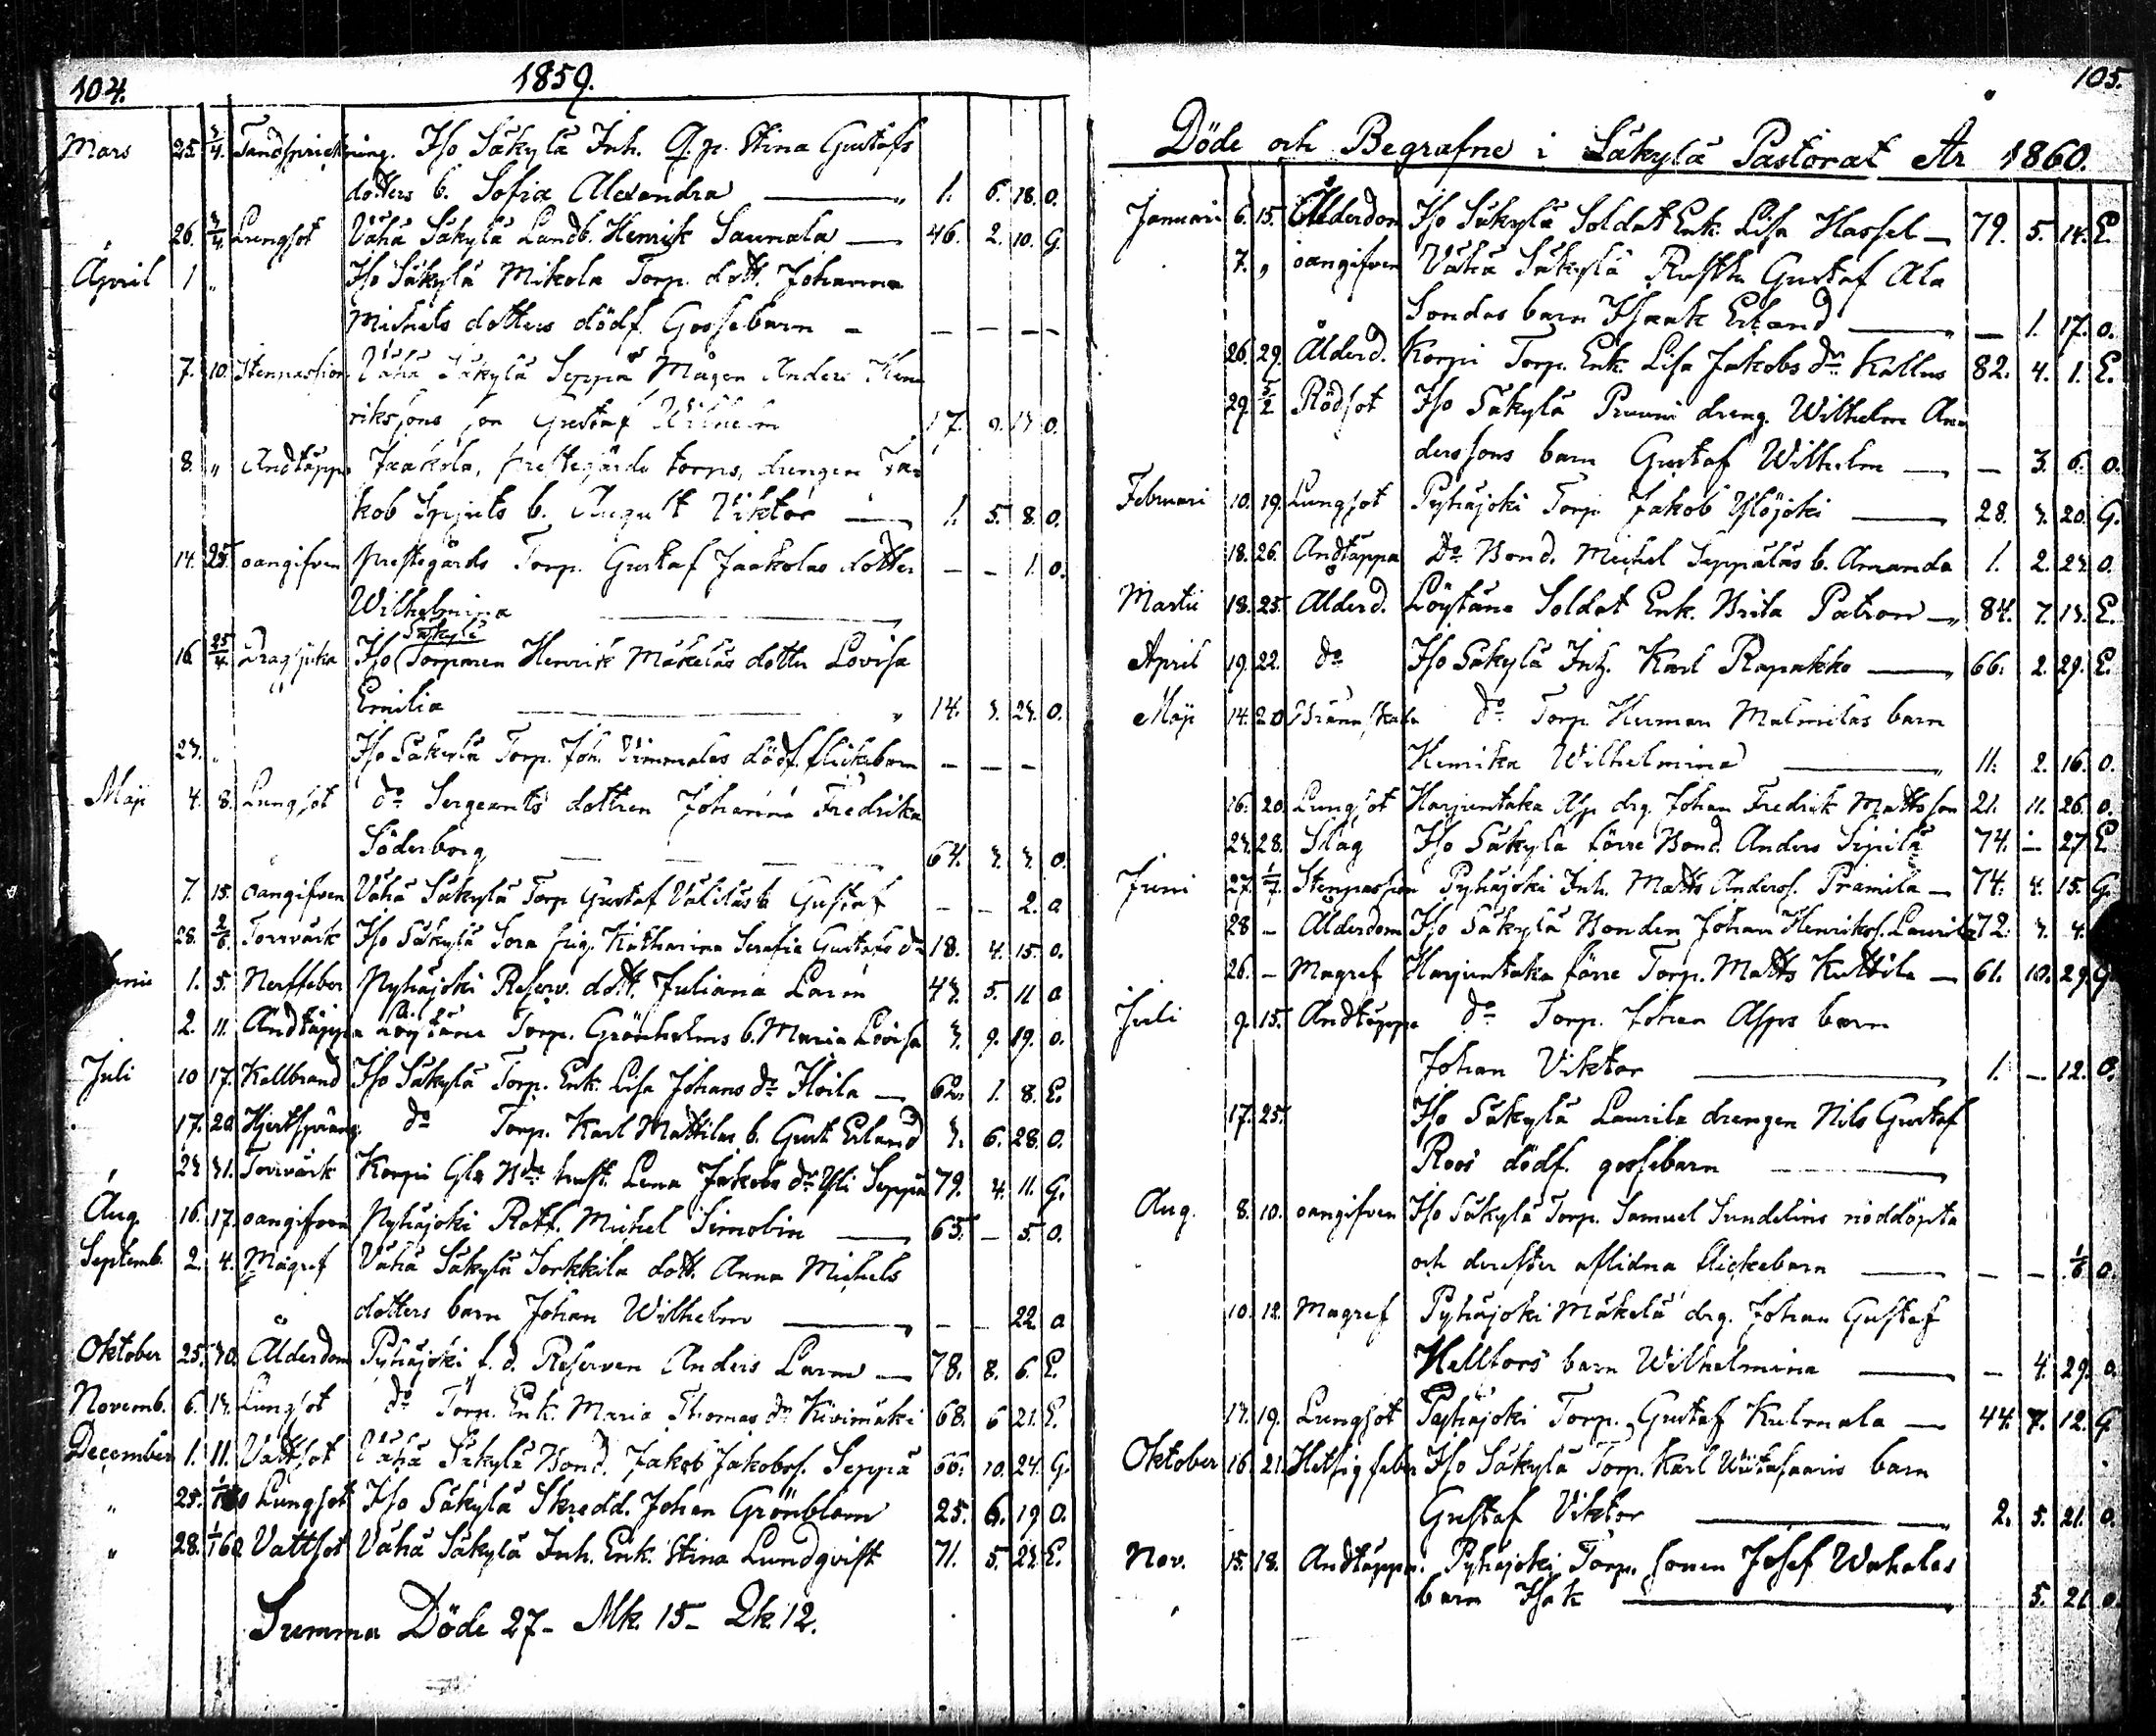 104.
1859.
Mars 25. 3/4. Tandsprickning. Iso Säkylä Inh. Q. p. Stina Gustafs
dotters b. Sofia Alexandra 1. 6. 18. o.
" 26. 3/4. Lungsot Vähä Säkylä Landb. Henrik Saunala 46. 2. 10. G.
April 1 " Iso Säkylä Mikola Torp. dott. Johanna
Michels dotters dödf. Gossebarn - - - - -
7. 10. Stenpassion Vähä Säkylä Seppä Mågen Anders Hen
rikssons son Gustaf Wilhelm 17. 9. 13 o.
8. " Andtäppa Jaakola, prestegårds torps, drengen Ja-
kob Spjuts b. August Viktor 1. 5. 8. o.
14. 25. oangifven prestegårds Torp. Gustaf Jaakolas dotter - - 1. o.
Wilhelmina
Säkylä
16. 25/4. Dragsjuka Iso Torparen Henrik Mäkeläs dotter Lovisa
Emilia 14. 3. 23. o.
23. " Iso Säkylä Torp. Joh. Vimmalas dödf. flickebarn - - -
Maji 4. 8. Lungsot do Sergeants dottren Johanna Fredrika
Söderborg 64. 3. 3. o.
7. 15. oangifven Vähä Säkylä Torp Gustaf Väliläs b. Gustaf - - 2. o
28. 2/6. Torrvärk Iso Säkylä Sora pig. Katharina Serafia Gustafs dr 18. 4. 15. o.
1. 5. Nerffeber Pyhäjoki Reserv. dott. Juliana Larm 43. 5. 11 o
2. 11. Andtäppa Löytäne Torp. Grönholms b. Maria Lovisa 3. 9. 19. o.
Juli 10 17. Kallbrand Iso Säkylä Torp. Enk. Lisa Johans dr Hoila 62. 1. 8. E.
17. 20 Hjertspräng. do Torp. Karl Mattilas b. Gust Erland 3. 6. 28. o.
23 31. Torrvärk Korpi Gla Bds hust. Lena Jakobs dr Yli Seppä 79. 4. 11. G.
Aug. 16. 17. oangifven Pyhäjoki Rott. Michel Simobin 65. - 5. o.
Septemb. 2. 4. Magref Vähä Säkylä Sorkkila dott. Anna Michels
dotters barn Johan Wilhelm - - 22 o
Oktober 25. 30. Ålderdom Pyhäjoki f. d. Reserven Anders Larm 78. 8. 6. E.
Novemb. 6. 13. Lungsot do Torp. Enk. Maria Thomas dr Kivimäki 68. 6 21. E.
December 1. 11. Vattsot Vähä Säkylä Bond. Jakob Jakobss. Seppä 66. 10. 24. G.
" 25. Lungsot Iso Säkylä Skredd. Johan Grönblom 25. 6. 19 o.
" 28. 1/1 60. Vattsot Vähä Säkylä Inh. Enk. Stina Lundqvist 71. 5. 23. E.
Summa Döde 27- Mk. 15- Qk. 12.
105.
Döde och Begrafne i Säkylä Pastorat År 1860.
Januari 6. 15. Ålderdom Iso Säkylä Soldat Enk. Lisa Hassel 79. 5. 14. E.
7. " oangifven Vähä Säkylä Rusth. Gustaf Ala
Sondas barn Isaak Erland - 1. 17. o.
26. 29. Ålderd. Korpi Torp. Enk. Lisa Jakobs dr Kallus 82. 4. 1. E.
29 5/2 Rödsot Iso Säkylä Pruuni dreng. Wilhelm An-
derssons barn Gustaf Wilhelm - 3. 6. o.
Februari 10. 19. Lungsot Pyhäjoki Torp. Jakob Ylöjoki 28. 3. 20. G.
18. 26. Andtäppa Do Bond. Michel Seppäläs b. Amanda 1. 2. 23. o.
Martii 18. 25. Ålderd. Löytäne Soldat Enk. Brita Patron 84. 7. 13. E.
April 19. 22. do Iso Säkylä Inh. Karl Rapakko 66. 2. 29. E.
Maji 14. 20 Brännskada do Torp. Herman Malmilas barn
Henrika Wilhelmina 11. 2. 16. o.
16. 20. Lungsot Harjuntaka Asp drg. Johan Fredrik Mattsson 21. 11. 26. o.
23. 28. Slag Iso Säkylä förre Bond. Anders Sipilä 74. - 27 E
Juni 27. 1/7. Stenpassion Pyhäjoki Inh. Matts Anderss. Prämila 74. 4. 15. G.
28 - Ålderdom Iso Säkylä Bonden Johan Henrikss. Laurila 72. 3. 4.
26. - Magref Harjuntaka förre Torp. Matts Kuttila 61. 10. 29. G
Juli 9. 15. Andtäppa do Torp. Johan Asps barn
Johan Viktor 1. - 12. o.
17. 25. Iso Säkylä Laurila drengen Nils Gustaf
Roos dödf. gossebarn
Aug. 8. 10. oangifven Iso Säkylä Torp. Samuel Sundelins nöddöpta
och derefter aflidna flickebarn - - 1/6 o.
10. 12. Magref Pyhäjoki Mäkelä drg. Johan Gustaf
Hellfors barn Wilhelmina - 4. 29. o.
13. 19. Lungsot Pyhäjoki Torp. Gustaf Kulmala 44. 7. 12. G
Oktober 16. 21. Hetsig feber Iso Säkylä Torp. Karl Wiitasaaris barn
Gustaf Viktor 2. 5. 21. o.
Nov. 15. 18. Andtäppa. Pyhäjoki Torp. sonen Josef Wahalas
barn Isak 5. 21. o